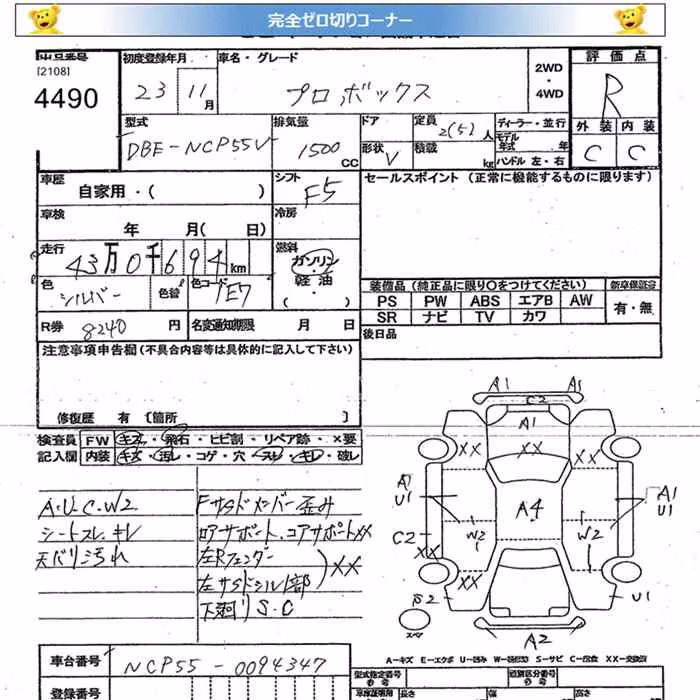 完全ゼロ切りコーナー
出品番号
[2108]
4490
初度登録年月
23 11月
車名・グレード
プロボックス
2WD
・
4WD
評価点
R
外装 内装
C C
型式
DBE-NCP55V
排気量
1500
CC
ドア
形状 V
定員 2(5)人
積載 kg
ディーラー・並行
モデル年式 年
ハンドル 左・右
車歴
自家用・( )
シフト
F5
セールスポイント (正常に機能するものに限ります)
車検
年 月( 日)
冷房
走行
43万0千694km
燃料
ガソリン
・
軽油
・
( )
色
シルバー
色替
色コード
1E7
装備品 (純正品に限り○をつけてください)
PS PW ABS エアB AW
SR ナビ TV カワ
新車保証書
有・無
R券 8240 円
名変通知期限 月 日
後日品
注意事項申告欄 (不具合内容等は具体的に記入して下さい)
修復歴 有 〔箇所 〕
検査員
記入欄
FW キズ・飛石・ヒビ割・リペア跡・×要
内装 キズ・汚レ・コゲ・穴・スレ・キレ・破レ
A.U.C.W2
シートスレ、キレ
天バリ汚れ
FサSドメンバー歪み
ロアサポート、コアサポートXX
左Rフェンダー
左サSドシル1部
XX
下廻りS.C
A1 A1
C2
A1
XX XX XX
A1
U1
A4
A1
U1
C2
XX
W2 W2
XX
S2
U1
スペア
A2
A-キズ E-エクボ U-凹み W-補修跡 S-サビ C-腐食 XX-交換済
車台番号
NCP55-0094347
登録番号
型式指定番号
参考
類別区分番号
参考
車庫証明用
長さ
幅
高さ